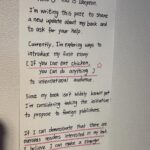 I'm writing this post to share
a new update about my book and
to ask for your help.
Currently, I'm exploring ways to
introduce my first essay
( If you love our children,
you can do anything )
to international audiences
Since my book isn't widely known yet
I'm considering taking the initiative
to propose to foreign publishers.
If I can demonstrate that there are
overseas readers interested in my book,
I believe I can make a stronger